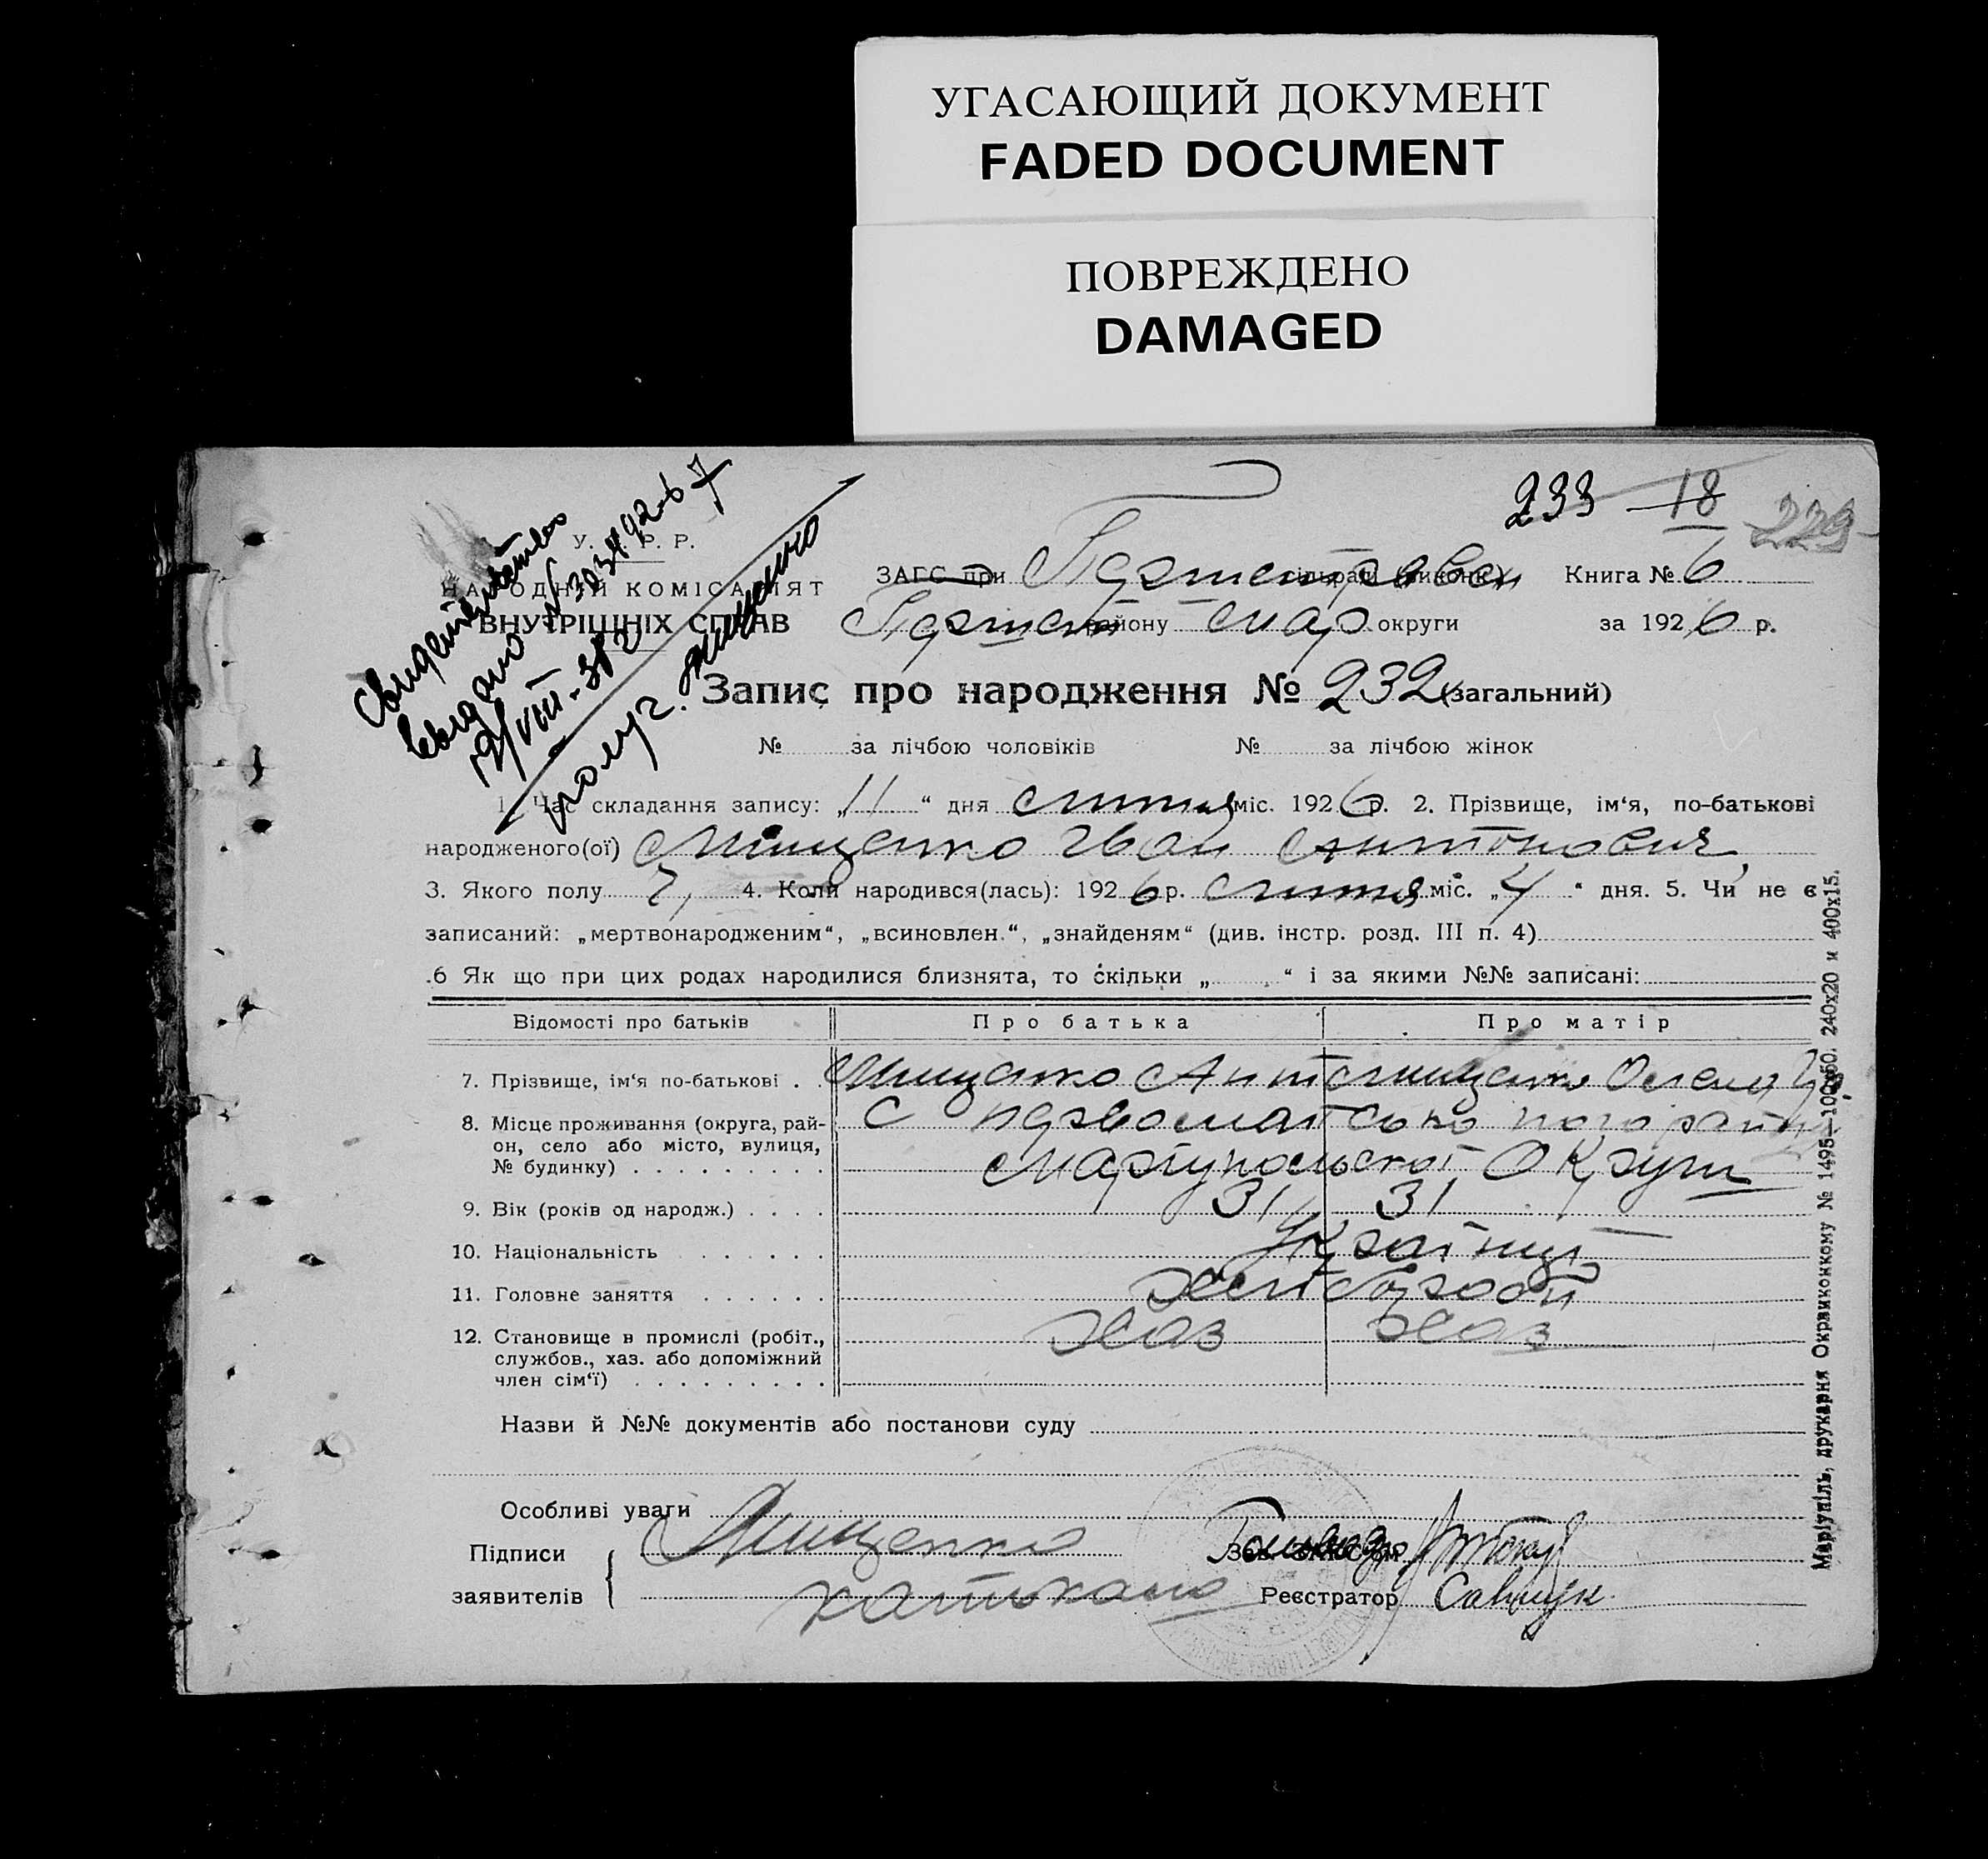 УГАСАЮЩИЙ ДОКУМЕНТ
FADED DOCUMENT
ПОВРЕЖДЕНО
DAMAGED
233 18 229
Свидетельство
выдано № 303492-67
У. Р. Р.
НАРОДНІЙ КОМІСАРІЯТ
ВНУТРІШНІХ СПРАВ
ЗАГС при сільраді (виконк) Книга № 6
району Мар округи за 1926 р.
получ. Мищенко
Запис про народження № 232 (загальний)
№ за лічбою чоловіків № за лічбою жінок
1. Час складання запису: „11“ дня лютня міс. 1926 р. 2. Прізвище, ім‘я, по-батькові
народженого(ої) Міщенко Іван Антонович
3. Якого полу ч, 4. Коли народився(лась): 1926 р. лютня міс. „4“ дня. 5. Чи не є
записаний: „мертвонародженим“, „всиновлен.“, „знайденям“ (див. інстр. розд. III п. 4)
6 Як що при цих родах народилися близнята, то скільки „ “ і за якими №№ записані:
Відомості про батьків Про батька Про матір
7. Прізвище, ім‘я по-батькові . . Мищенко Антон Мищенко Олена
8. Місце проживання (округа, рай-
он, село або місто, вулиця,
№ будинку) . . . . . . . . .
С Первомайсько того району
Маріупольскої Округи
9. Вік (років од народж.) . . . . 31 31
10. Національність . . . . . . Українці
11. Головне заняття . . . . . . Хлібороби
12. Становище в промислі (робіт.,
службов., хаз. або допоміжний
член сім‘ї) . . . . . . . . .
Хаз Хаз
Назви й №№ документів або постанови суду
Особливі уваги
Підписи
заявителів
Мищенко
Голова
Реєстратор Савчук
Маріупіль, друкарня Окрвиконкому № 1495—100х60. 240х20 и 400х15.